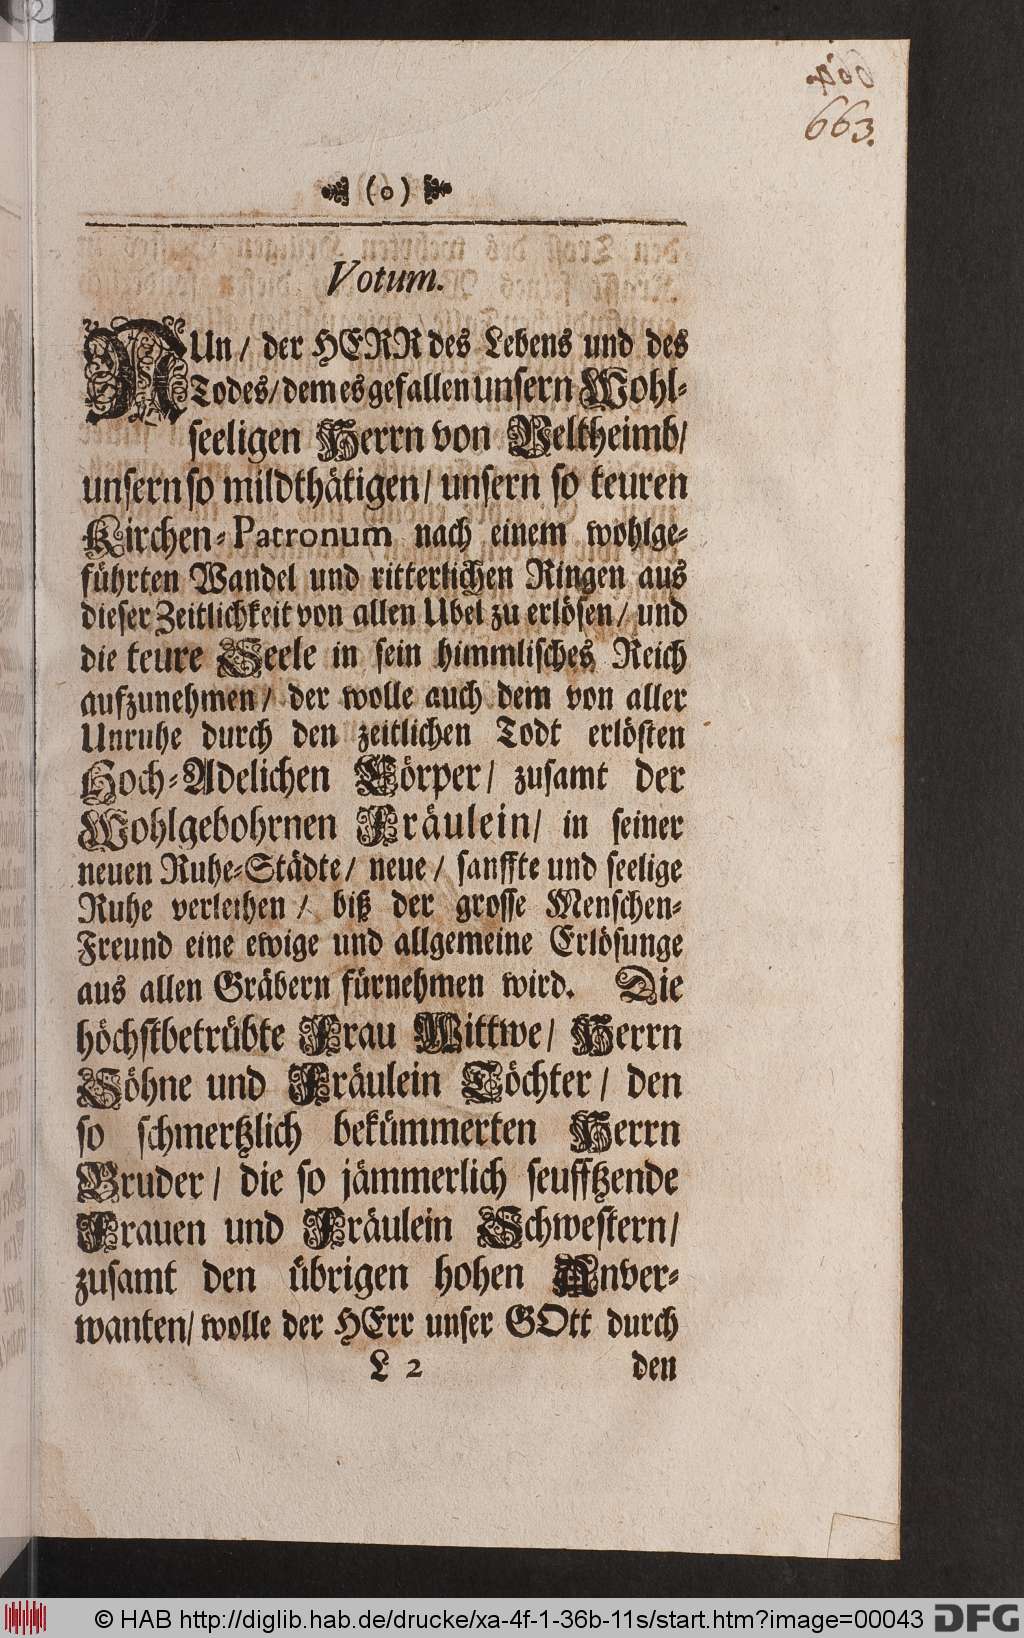 663.
(o)
Votum.
NUn / der HERR des Lebens und des
Todes / dem es gefallen unsern Wohl-
seeligen Herrn von Veltheimb /
unsern so mildthätigen / unsern so teuren
Kirchen-Patronum nach einem wohlge-
führten Wandel und ritterlichen Ringen aus
dieser Zeitlichkeit von allen Ubel zu erlösen / und
die teure Seele in sein himmlisches Reich
aufzunehmen / der wolle auch dem von aller
Unruhe durch den zeitlichen Todt erlösten
Hoch-Adelichen Cörper / zusamt der
Wohlgebohrnen Fräulein / in seiner
neuen Ruhe-Städte / neue / sanffte und seelige
Ruhe verleihen / biß der grosse Menschen-
Freund eine ewige und allgemeine Erlösunge
aus allen Gräbern fürnehmen wird. Die
höchstbetrübte Frau Wittwe / Herrn
Söhne und Fräulein Töchter / den
so schmertzlich bekümmerten Herrn
Bruder / die so jämmerlich seufftzende
Frauen und Fräulein Schwestern /
zusamt den übrigen hohen Anver-
wanten / wolle der HErr unser GOtt durch
L 2 den
© HAB http://diglib.hab.de/drucke/xa-4f-1-36b-11s/start.htm?image=00043 DFG